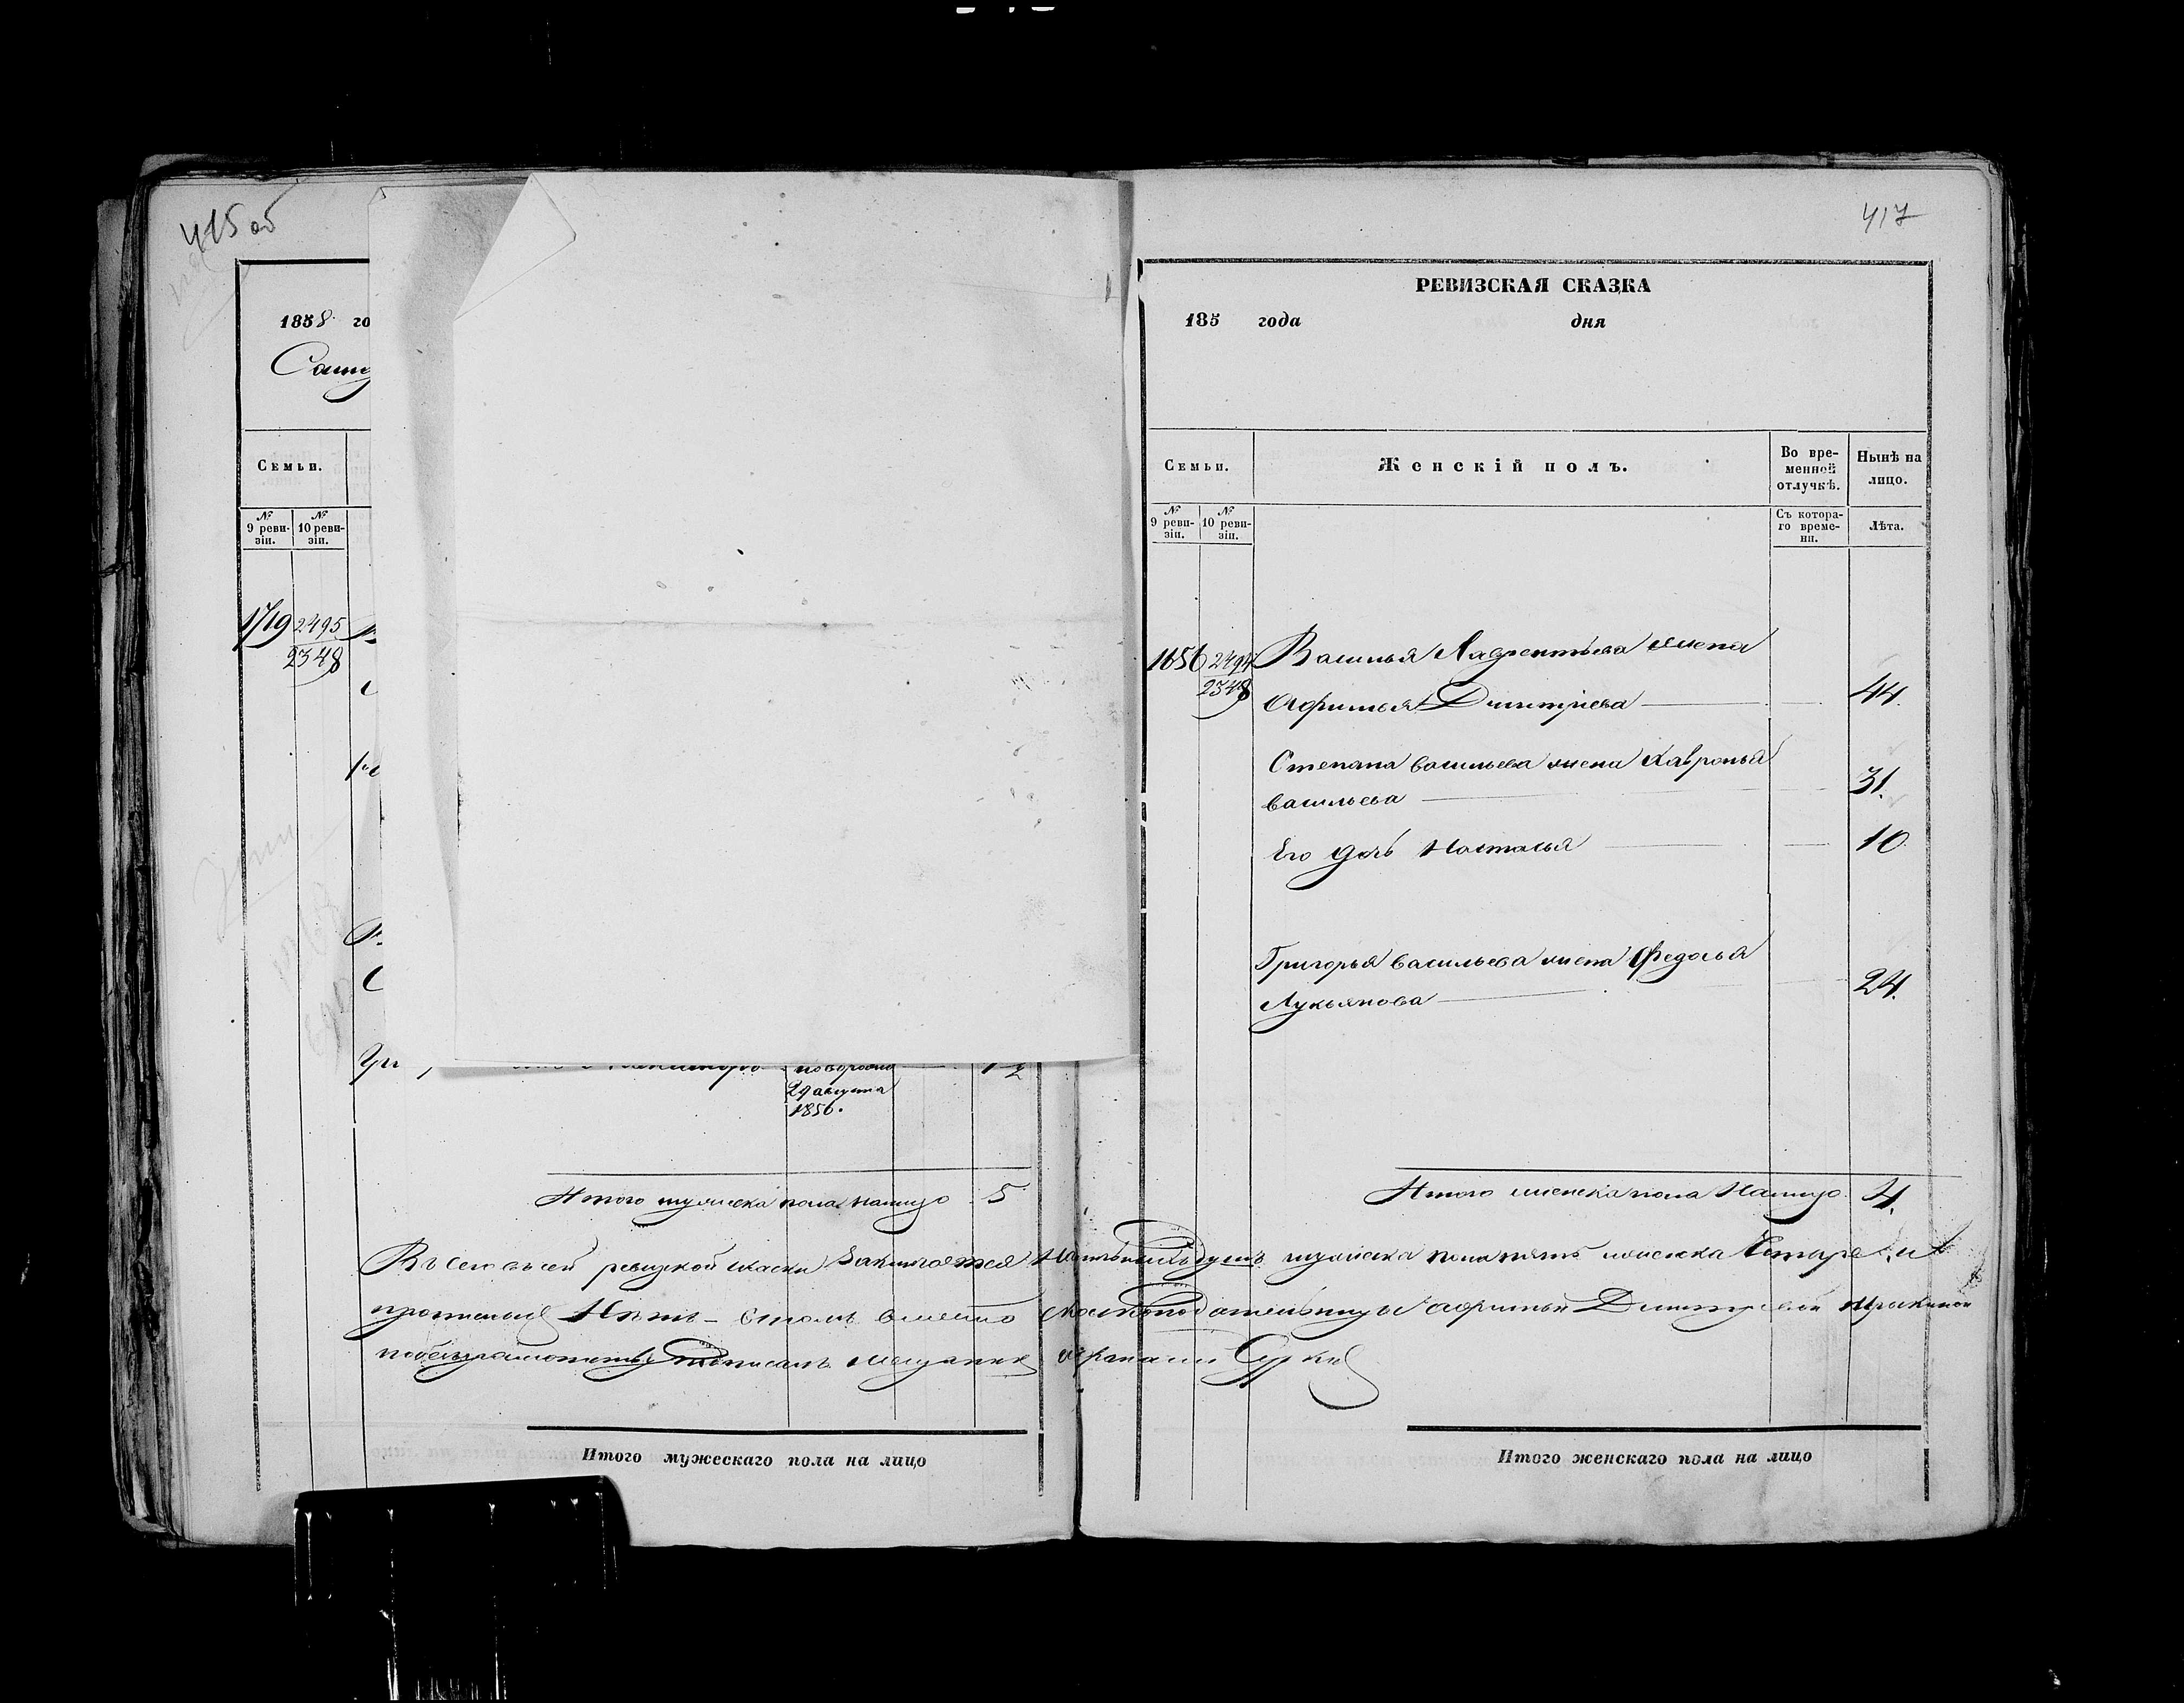 415 об
1858 го
Семьи.
№ 9 реви-зіи.
№ 10 реви-зіи.
1719
2495
2348
новорожд
29 августа
1856.
Итого мужеска пола налицо 5
Итого мужескаго пола на лицо
417
РЕВИЗСКАЯ СКАЗКА
185 года дня
Семьи.
Женскій полъ.
Во вре-менной отлучкѣ.
Нынѣ на лицо.
№ 9 реви-зіи.
№ 10 реви-зіи.
Съ котора-го време-ни.
Лѣта.
1656 2494 Василья Лаврентьева жена
2348 Афимья Дмитріева 44.
Степана васильева жена Хавронья
васильева 31.
Его дочь Настасья 10.
Григорья васильева жена Федосья
Лукьянова 24.
Итого женска пола Налицо 4.
Въ сей ревизкой скаски Заключается душъ мужеска пола пять женска Четыре и
прописных Нѣтъ - въ томъ вместо Афимьи Дмитревой
подписалъ мещанинъ
Итого женскаго пола на лицо